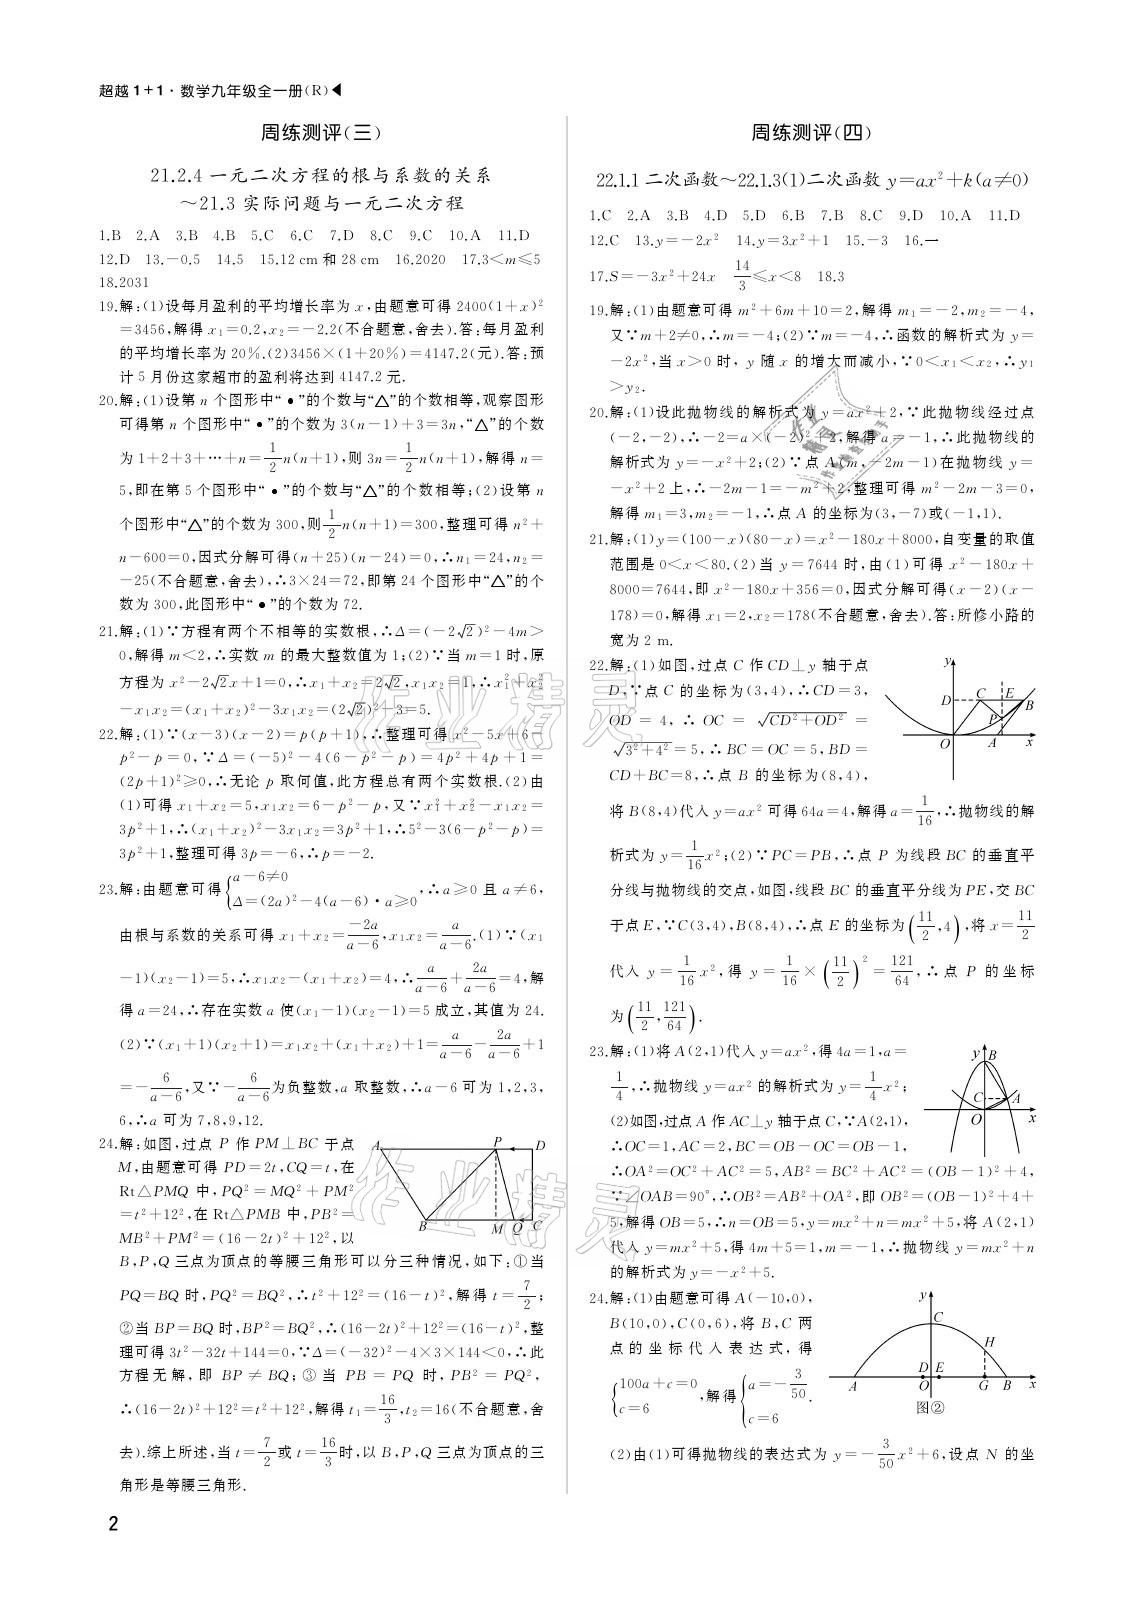 超越1+1·数学九年级全一册(R)◀
周练测评(三)
21.2.4 一元二次方程的根与系数的关系
～21.3 实际问题与一元二次方程
1.B 2.A 3.B 4.B 5.C 6.C 7.D 8.C 9.C 10.A 11.D
12.D 13.-0.5 14.5 15.12 cm和28 cm 16.2020 17.3<m≤5
18.2031
19.解:(1)设每月盈利的平均增长率为x,由题意可得2400(1+x)²
=3456,解得x₁=0.2,x₂=-2.2(不合题意,舍去).答:每月盈利
的平均增长率为20%.(2)3456×(1+20%)=4147.2(元).答:预
计5月份这家超市的盈利将达到4147.2元.
20.解:(1)设第n个图形中“●”的个数与“△”的个数相等,观察图形
可得第n个图形中“●”的个数为3(n-1)+3=3n,“△”的个数
为1+2+3+…+n=1/2n(n+1),则3n=1/2n(n+1),解得n=
5,即在第5个图形中“●”的个数与“△”的个数相等;(2)设第n
个图形中“△”的个数为300,则1/2n(n+1)=300,整理可得n²+
n-600=0,因式分解可得(n+25)(n-24)=0,∴n₁=24,n₂=
-25(不合题意,舍去),∴3×24=72,即第24个图形中“△”的个
数为300,此图形中“●”的个数为72.
21.解:(1)∵方程有两个不相等的实数根,∴Δ=(-2√2)²-4m>
0,解得m<2,∴实数m的最大整数值为1;(2)∵当m=1时,原
方程为x²-2√2x+1=0,∴x₁+x₂=2√2,x₁x₂=1,∴x₁²+x₂²
-x₁x₂=(x₁+x₂)²-3x₁x₂=(2√2)²-3=5.
22.解:(1)∵(x-3)(x-2)=p(p+1),∴整理可得x²-5x+6-
p²-p=0,∵Δ=(-5)²-4(6-p²-p)=4p²+4p+1=
(2p+1)²≥0,∴无论p取何值,此方程总有两个实数根.(2)由
(1)可得x₁+x₂=5,x₁x₂=6-p²-p,又∵x₁²+x₂²-x₁x₂=
3p²+1,∴(x₁+x₂)²-3x₁x₂=3p²+1,∴5²-3(6-p²-p)=
3p²+1,整理可得3p=-6,∴p=-2.
23.解:由题意可得{a-6≠0 Δ=(2a)²-4(a-6)·a≥0,∴a≥0且a≠6,
由根与系数的关系可得x₁+x₂=-2a/(a-6),x₁x₂=a/(a-6).(1)∵(x₁
-1)(x₂-1)=5,∴x₁x₂-(x₁+x₂)=4,∴a/(a-6)+2a/(a-6)=4,解
得a=24,∴存在实数a使(x₁-1)(x₂-1)=5成立,其值为24.
(2)∵(x₁+1)(x₂+1)=x₁x₂+(x₁+x₂)+1=a/(a-6)-2a/(a-6)+1
=-6/(a-6),又∵-6/(a-6)为负整数,a取整数,∴a-6可为1,2,3,
6,∴a可为7,8,9,12.
24.解:如图,过点P作PM⊥BC于点
M,由题意可得PD=2t,CQ=t,在
Rt△PMQ中,PQ²=MQ²+PM²
=t²+12²,在Rt△PMB中,PB²=
MB²+PM²=(16-2t)²+12²,以
A P D
B M Q C
B,P,Q三点为顶点的等腰三角形可以分三种情况,如下:①当
PQ=BQ时,PQ²=BQ²,∴t²+12²=(16-t)²,解得t=7/2;
②当BP=BQ时,BP²=BQ²,∴(16-2t)²+12²=(16-t)²,整
理可得3t²-32t+144=0,∵Δ=(-32)²-4×3×144<0,∴此
方程无解,即BP≠BQ;③当PB=PQ时,PB²=PQ²,
∴(16-2t)²+12²=t²+12²,解得t₁=16/3,t₂=16(不合题意,舍
去).综上所述,当t=7/2或t=16/3时,以B,P,Q三点为顶点的三
角形是等腰三角形.
2
周练测评(四)
22.1.1 二次函数～22.1.3(1)二次函数y=ax²+k(a≠0)
1.C 2.A 3.B 4.D 5.D 6.B 7.B 8.C 9.D 10.A 11.D
12.C 13.y=-2x² 14.y=3x²+1 15.-3 16.一
17.S=-3x²+24x 14/3≤x<8 18.3
19.解:(1)由题意可得m²+6m+10=2,解得m₁=-2,m₂=-4,
又∵m+2≠0,∴m=-4;(2)∵m=-4,∴函数的解析式为y=
-2x²,当x>0时,y随x的增大而减小,∵0<x₁<x₂,∴y₁
>y₂.
20.解:(1)设此抛物线的解析式为y=ax²+2,∵此抛物线经过点
(-2,-2),∴-2=a×(-2)²+2,解得a=-1,∴此抛物线的
解析式为y=-x²+2;(2)∵点A(m,-2m-1)在抛物线y=
-x²+2上,∴-2m-1=-m²+2,整理可得m²-2m-3=0,
解得m₁=3,m₂=-1,∴点A的坐标为(3,-7)或(-1,1).
21.解:(1)y=(100-x)(80-x)=x²-180x+8000,自变量的取值
范围是0<x<80.(2)当y=7644时,由(1)可得x²-180x+
8000=7644,即x²-180x+356=0,因式分解可得(x-2)(x-
178)=0,解得x₁=2,x₂=178(不合题意,舍去).答:所修小路的
宽为2 m.
22.解:(1)如图,过点C作CD⊥y轴于点
D,∵点C的坐标为(3,4),∴CD=3,
OD=4,∴OC=√(CD²+OD²)=
√(3²+4²)=5,∴BC=OC=5,BD=
CD+BC=8,∴点B的坐标为(8,4),
y
D C E B
P
O A x
将B(8,4)代入y=ax²可得64a=4,解得a=1/16,∴抛物线的解
析式为y=1/16x²;(2)∵PC=PB,∴点P为线段BC的垂直平
分线与抛物线的交点,如图,线段BC的垂直平分线为PE,交BC
于点E,∵C(3,4),B(8,4),∴点E的坐标为(11/2,4),将x=11/2
代入y=1/16x²,得y=1/16×(11/2)²=121/64,∴点P的坐标
为(11/2,121/64).
23.解:(1)将A(2,1)代入y=ax²,得4a=1,a=
1/4,∴抛物线y=ax²的解析式为y=1/4x²;
(2)如图,过点A作AC⊥y轴于点C,∵A(2,1),
y B
C A
O x
∴OC=1,AC=2,BC=OB-OC=OB-1,
∴OA²=OC²+AC²=5,AB²=BC²+AC²=(OB-1)²+4,
∵∠OAB=90°,∴OB²=AB²+OA²,即OB²=(OB-1)²+4+
5,解得OB=5,∴n=OB=5,y=mx²+n=mx²+5,将A(2,1)
代入y=mx²+5,得4m+5=1,m=-1,∴抛物线y=mx²+n
的解析式为y=-x²+5.
24.解:(1)由题意可得A(-10,0),
B(10,0),C(0,6),将B,C两
点的坐标代入表达式,得
{100a+c=0 c=6,解得{a=-3/50 c=6.
y
C
H
D E
A O G B x
图②
(2)由(1)可得抛物线的表达式为y=-3/50x²+6,设点N的坐
作业精灵
作业精灵